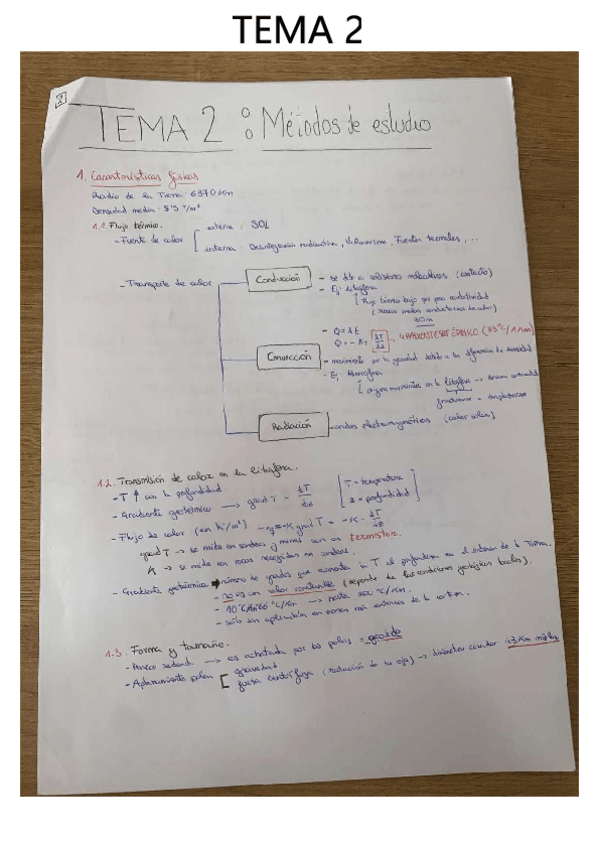 TEMA 2
2
TEMA 2 : Métodos de estudio
1. Características físicas
Radio de la Tierra: 6370 km
Densidad media: 5'5 g/m³
1.1. Flujo térmico.
- Fuente de calor
externa : SOL
interna : Desintegración radioactiva, Vulcanismo, Fuentes termales, ...
- Transporte de calor
Conducción
- se debe a colisiones moleculares (contacto)
- Ej: Litosfera
Flujo térmico bajo por poca conductividad
(rocas malas conductoras de calor)
- Q = λE
- Q = - K ·
dT
dz
→ GRADIENTE GEOTÉRMICO (33°C/1 km)
Convección
- movimiento por la gravedad debido a la diferencia de densidad
- Ej: Atmosfera
origina movimientos en la litosfera →
Radiación
- ondas electromagnéticas (calor solar)
1.2. Transmisión de calor en la litosfera.
- T ↑ con la profundidad
- Gradiente geotérmico → grad T = dT/dz
T = temperatura
z = profundidad
- Flujo de calor (en W/m²) → q = -K grad T = -K · dT/dz
grad T → se mide en sondeos y minas con un termistor.
K → se mide en rocas recogidas en sondeos.
- Gradiente geotérmico → número de grados que aumenta la T al profundizar en el interior de la Tierra.
- no es un valor constante (depende de las condiciones geológicas locales).
→ hasta 200 °C/km.
- sólo son aplicables en zonas más externas de la
1.3. Forma y tamaño.
- Parece redonda → es achatada por los polos = geoide
- Aplanamiento polar
gravedad
fuerza centrífuga (rotación de su eje) → diámetro ecuador 43 km más